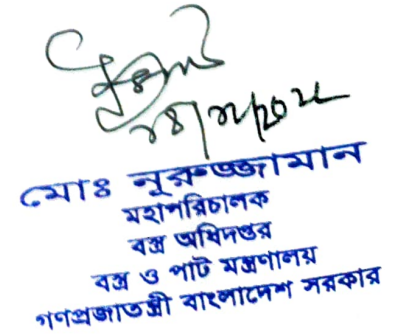 মোঃ নূরুজ্জামান
মহাপরিচালক
বস্ত্র অধিদপ্তর
বস্ত্র ও পাট মন্ত্রণালয়
গণপ্রজাতন্ত্রী বাংলাদেশ সরকার